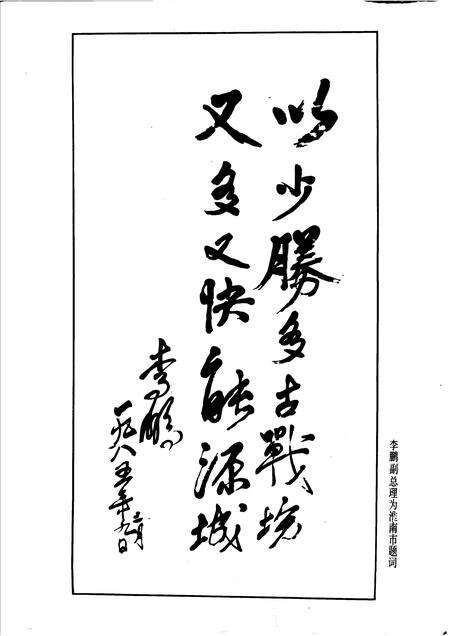 以少勝多古戰场
又多又快能源城
李鹏
一九八五年
李鹏副总理为淮南市题词